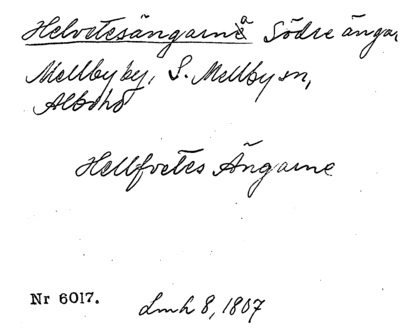 Helvetesängarna Södre ängar
Mellby by, S. Mellby sn,
Albo hd
Hellfvetes Ängarne
Nr 6017.
Lmh 8, 1807